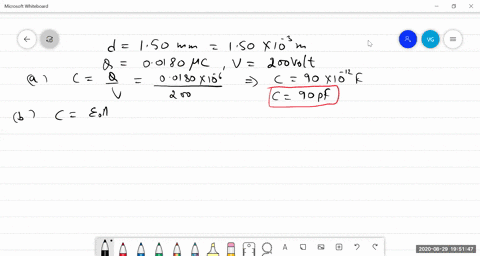 Microsoft Whiteboard
VG
d = 1.50 mm = 1.50 ×10⁻³ m
Q = 0.0180 μC, V = 200 Volt
(a) C = Q/V = 0.0180×10⁻⁶/200 ⇒ C = 90 ×10⁻¹² F
C = 90 pF
(b) C = ε₀A
2020-08-29 19:51:47